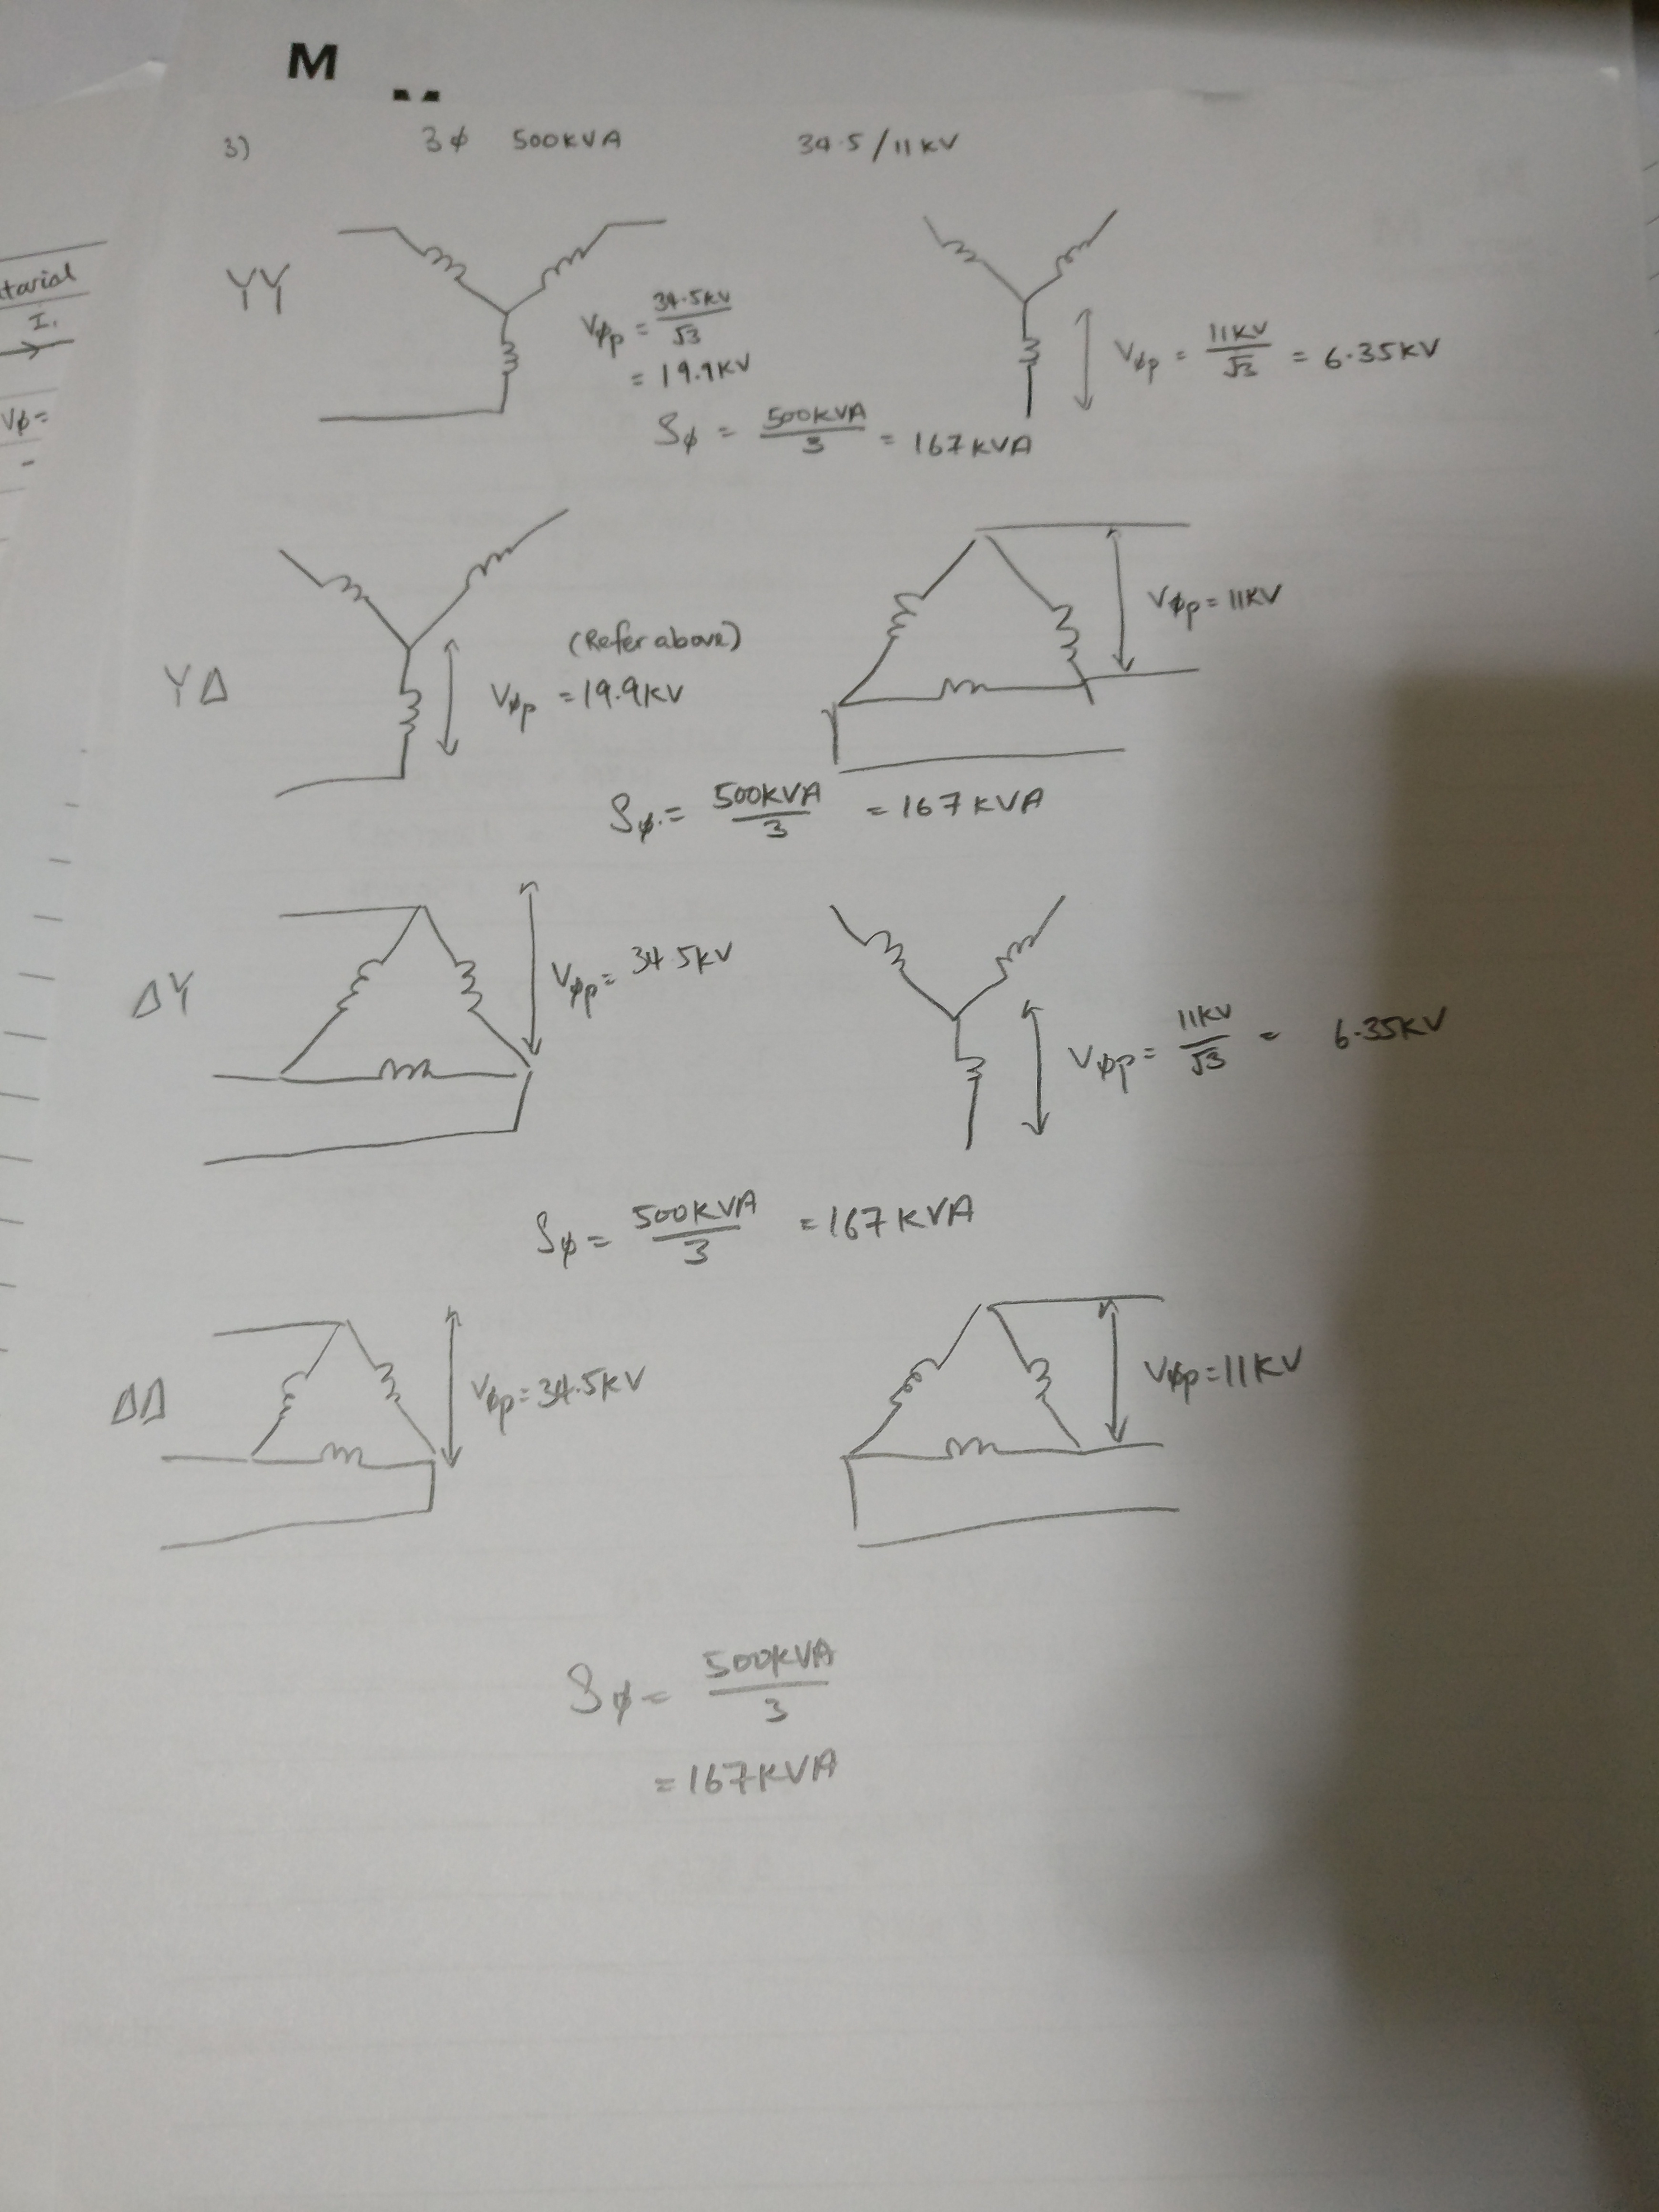 M
3) 3φ 500KVA 34.5/11KV
YY
Vφp = 34.5KV/√3
= 19.9KV
Vφp = 11KV/√3 = 6.35KV
Sφ = 500KVA/3 = 167KVA
YΔ
(Refer above)
Vφp = 19.9KV
Vφp = 11KV
Sφ = 500KVA/3 = 167KVA
ΔY
Vφp = 34.5KV
Vφp = 11KV/√3 = 6.35KV
Sφ = 500KVA/3 = 167KVA
ΔΔ
Vφp = 34.5KV
Vφp = 11KV
Sφ = 500KVA/3
= 167KVA
I1
Vφ=